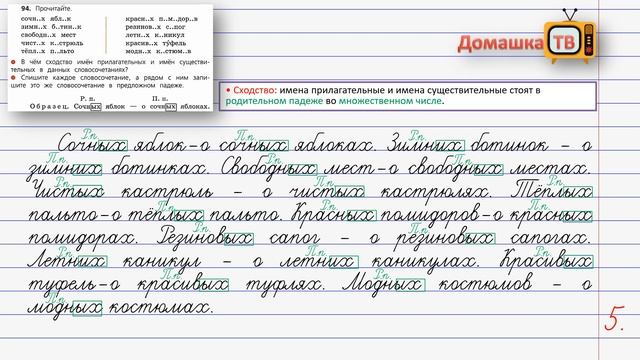 94. Прочитайте.
сочн..х ябл..к
красн..х п..м..дор..в
зимн..х б..тин..к
резинов..х с..пог
свободн..х мест
летн..х к..никул
чист..х к..стрюль
красив..х ту́фель
тёпл..х п..льто
модн..х к..стюм..в
В чём сходство имён прилагательных и имён существи-
тельных в данных словосочетаниях?
Спишите каждое словосочетание, а рядом с ним запи-
шите это же словосочетание в предложном падеже.
Р. п. П. п.
Образец. Сочных яблок — о сочных яблоках.
Домашка ТВ
• Сходство: имена прилагательные и имена существительные стоят в
родительном падеже во множественном числе.
Р.п. П.п. Р.п.
Сочных яблок-о сочных яблоках. Зимних ботинок - о
П.п. Р.п. П.п.
зимних ботинках. Свободных мест-о свободных местах.
Р.п. П.п. Р.п.
Чистых кастрюль - о чистых кастрюлях. Тёплых
П.п. Р.п. П.п.
пальто-о тёплых пальто. Красных помидоров-о красных
Р.п. П.п.
помидорах. Резиновых сапог - о резиновых сапогах.
Р.п. П.п. Р.п.
Летних каникул - о летних каникулах. Красивых
П.п. Р.п.
туфель-о красивых туфлях. Модных костюмов - о
П.п.
модных костюмах.
5.